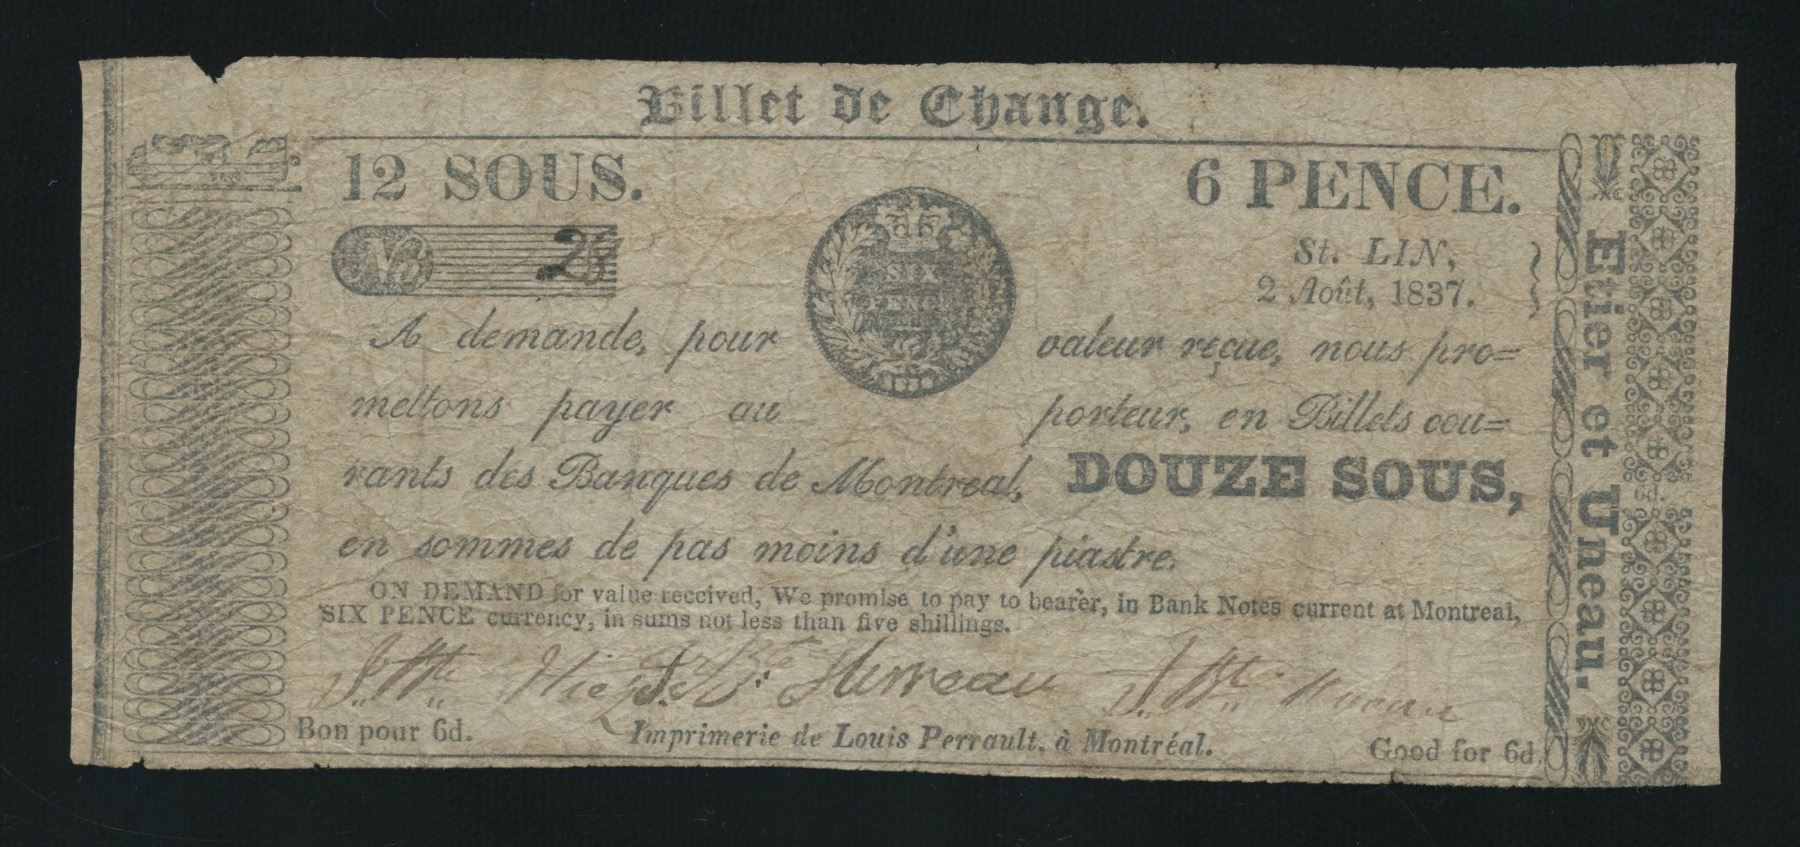 Billet de Change.
12 SOUS.
6 PENCE.
No
2
SIX
PENCE
St. LIN,
2 Août, 1837.
A demande, pour valeur reçue, nous pro=
mettons payer au porteur, en Billets cou=
rants des Banques de Montreal, DOUZE SOUS,
en sommes de pas moins d'une piastre.
ON DEMAND for value received, We promise to pay to bearer, in Bank Notes current at Montreal,
SIX PENCE currency, in sums not less than five shillings.
Bon pour 6d.
Imprimerie de Louis Perrault, à Montréal.
Good for 6d
Etier et Uneau.
6d.